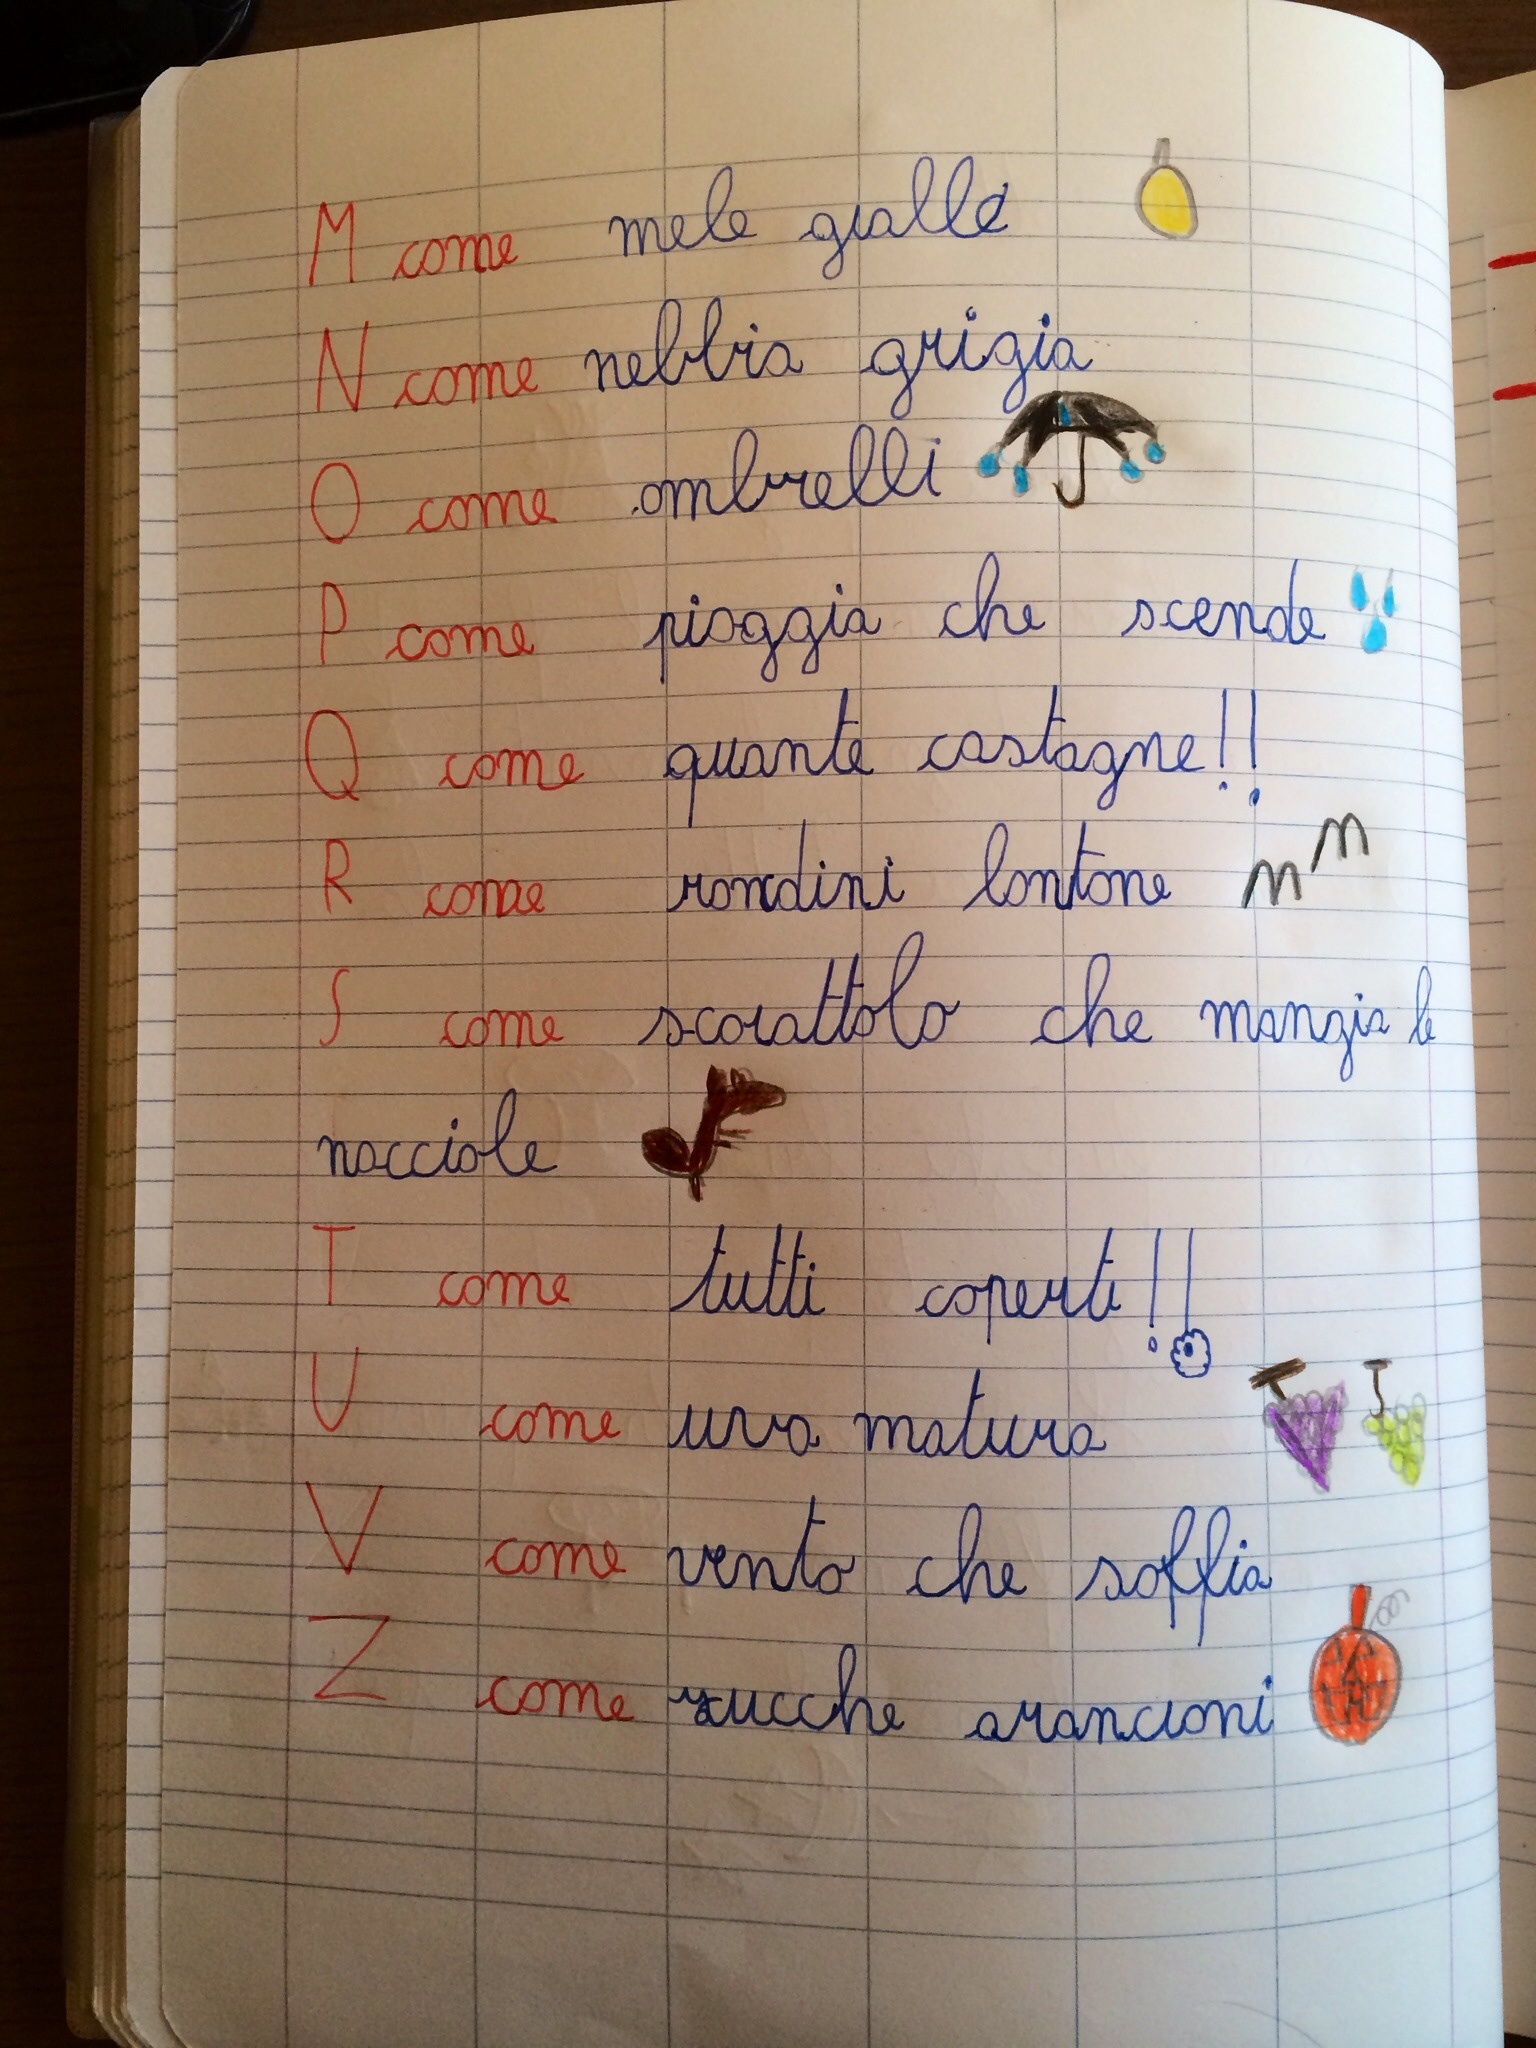 M come mele gialle
N come nebbia grigia
O come ombrelli
P come pioggia che scende
Q come quante castagne!!
R come rondini lontane
S come scoiattolo che mangia le
nocciole
T come tutti coperti!!
U come uva matura
V come vento che soffia
Z come zucche arancioni